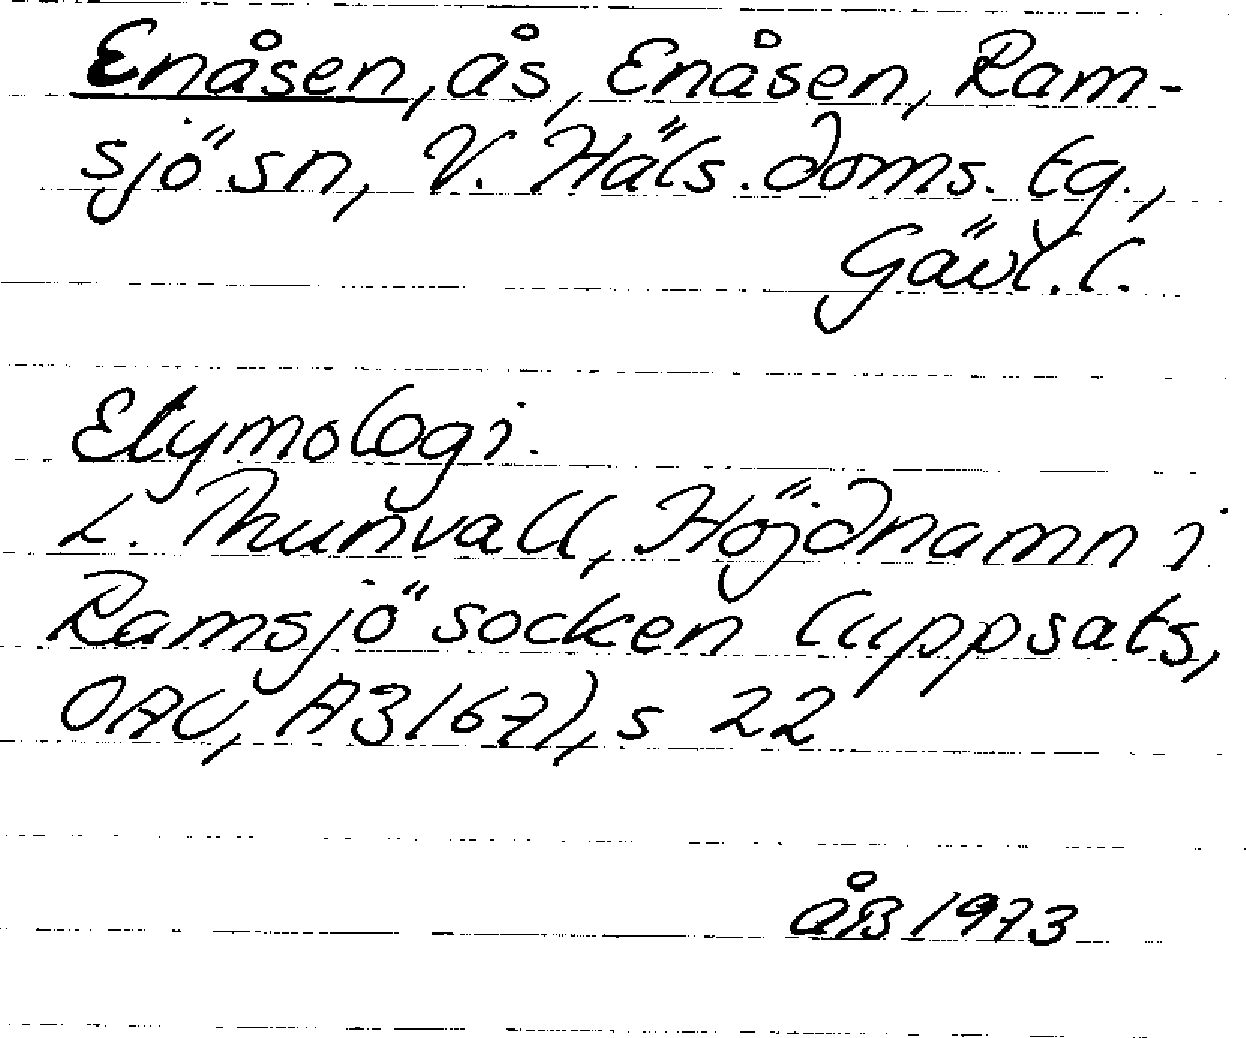 Enåsen, ås, Enåsen, Ram-
sjö sn, V. Häls. doms. tg.,
Gävl. l.
Etymologi.
L. Thunvall, Höjdnamn i
Ramsjö socken (uppsats,
OAU, A3167), s 22
åB 1973